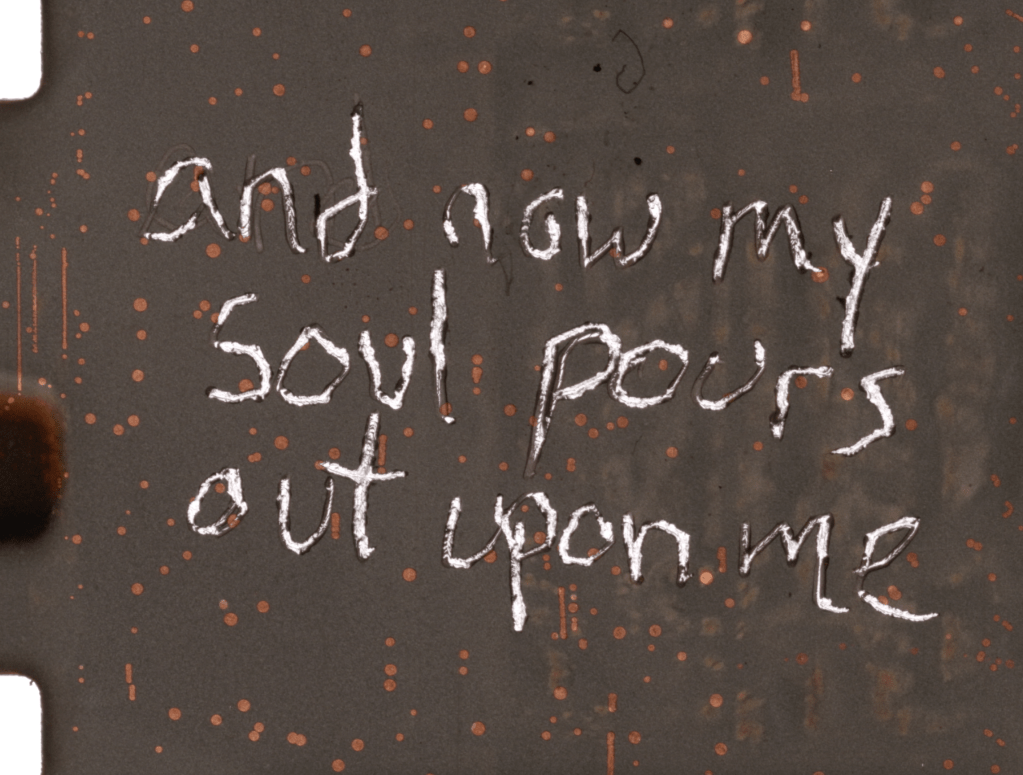 and now my
soul pours
out upon me